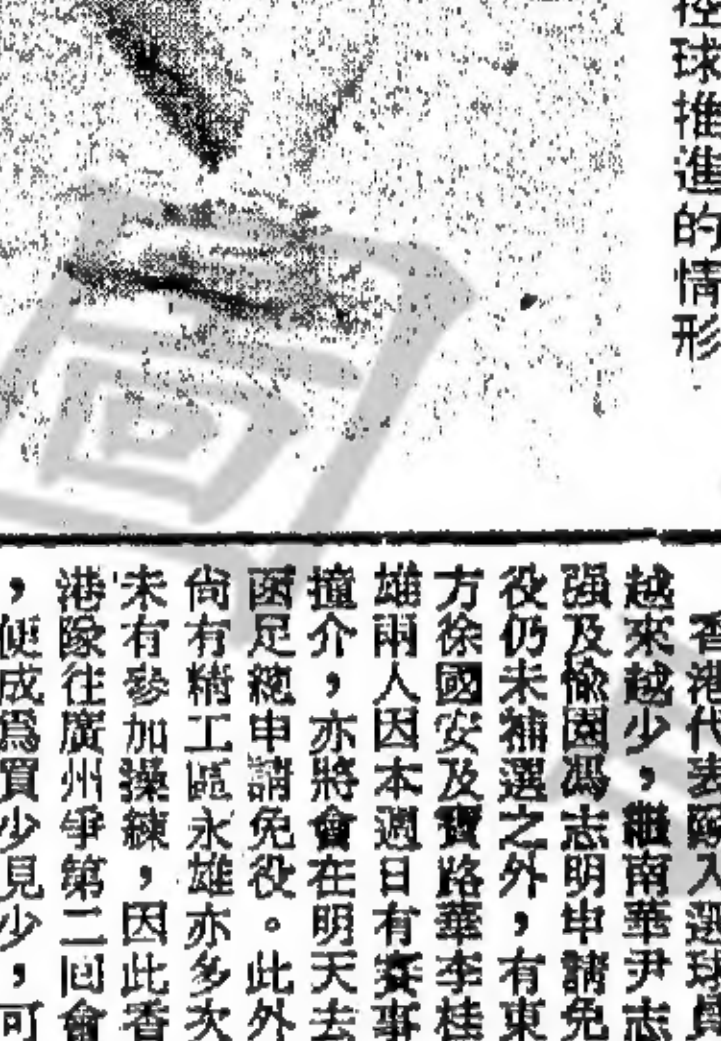 控球推進的情形
香港代表隊入選球員
越來越少，繼南華尹志
強及愉園馮志明申請免
役仍未補選之外，有東
方徐國安及寶路華李桂
雄兩人因本週日有賽事
撞介，亦將會在明天去
函足總申請免役。此外
尚有精工區永雄亦多次
未有參加操練，因此香
港隊往廣州爭第二回會
，便成爲買少見少，可